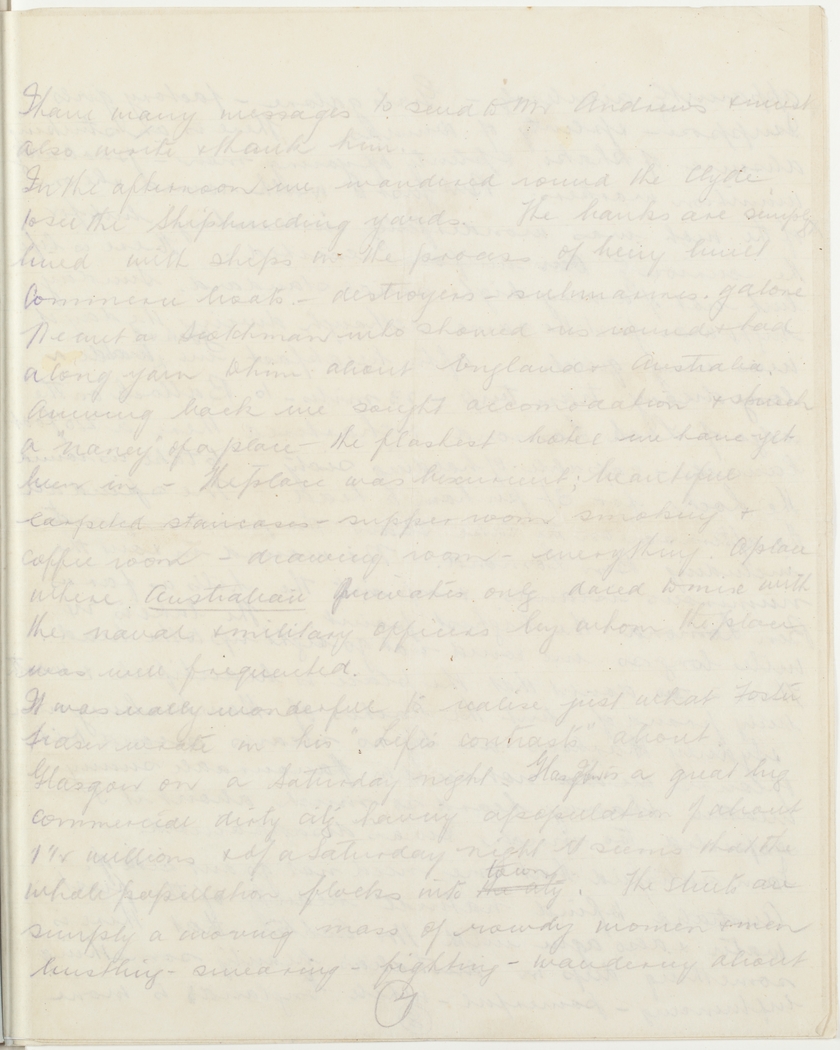 I have many messages to send to Mr Andrews & must
also write & thank him.
In the afternoon we wandered round the Clyde
to see the Shipbuilding yards. The banks are simply
lined with ships in the process of being built
Commerce boats - destroyers - submarines. galore
We met a Scotchman who showed us round & had
a long yarn to him about England & Australia.
Arriving back we sought accomodation & struck
a "nancy" of a place - the flashest hotel we have yet
been in - The place was luxurient; beautiful
carpeted staircases - supper room smoking &
coffee room - drawing room - everything. A place
where Australian Privates only dared to mix with
the naval & military officers by whom the place
was well frequented.
It was really wonderful to realise just what Foster
Fraser wrote in his "Life's contrasts" about.
Glasgow on a Saturday night. Glasgow is a great big
commercial dirty city having a population of about
1¼ millions & of a Saturday night it seems that the
whole popullation flocks into the city town. The streets are
simply a moving mass of rowdy women & men
hustling - swearing - fighting - wandering about